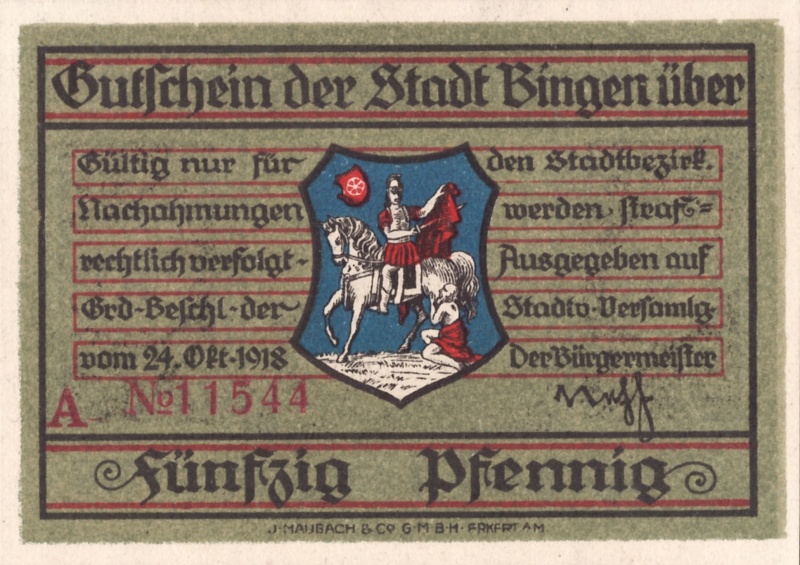 Gutschein der Stadt Bingen über
Gültig nur für den Stadtbezirk.
Nachahmungen werden straf=
rechtlich verfolgt- Ausgegeben auf
Grd-Beschl-der- Stadtv-Versamlg
vom 24. Okt-1918 Der Bürgermeister
A No 11544
Fünfzig Pfennig
J. MAUBACH & Co G·M·B·H·